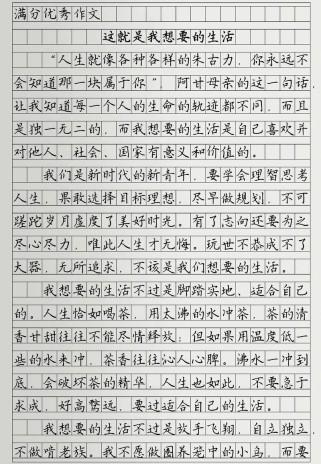 满分优秀作文
这就是我想要的生活
“人生就像各种各样的朱古力，你永远不
会知道那一块属于你”，阿甘母亲的这一句话，
让我知道每一个人的生命的轨迹都不同，而且
是独一无二的，而我想要的生活是自己喜欢并
对他人、社会、国家有意义和价值的。
我们是新时代的新青年，要学会理智思考
人生，果敢选择目标理想，尽早做规划，不可
蹉跎岁月虚度了美好时光。有了志向还要为之
尽心尽力，唯此人生才无悔。玩世不恭成不了
大器，无所追求，不该是我们想要的生活。
我想要的生活不过是脚踏实地，适合自己
的。人生恰如喝茶，用太沸的水冲茶，茶的清
香甘甜往往不能尽情释放；但如果用温度低一
些的水来冲，茶香往往沁人心脾。沸水一冲到
底，会破坏茶的精华，人生也如此，不要急于
求成，好高骛远，要过适合自己的生活。
我想要的生活不过是放手飞翔，自立独立，
不做啃老族。我不愿做圈养笼中的小鸟，而要